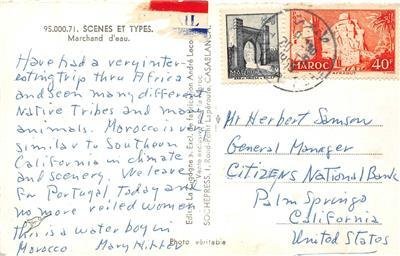 95.000.71. SCENES ET TYPES.
Marchand d'eau.
Have had a very inter-
esting trip thru Africa
and seen many different
Native Tribes and many
animals. Morocco is very
similar to Southern
California in climate
and scenery. We leave
for Portugal today and
no more veiled women
this is a water boy in
Morocco Mary
Photo véritable
Exclu. de fabrication André Leconte
SOCHEPRESS, 1, Rond-Point Lapérouse, CASABLANCA
MAROC
MAROC
40F
Mr Herbert Samson
General Manager
Citizens National Bank
Palm Springs
California
United States